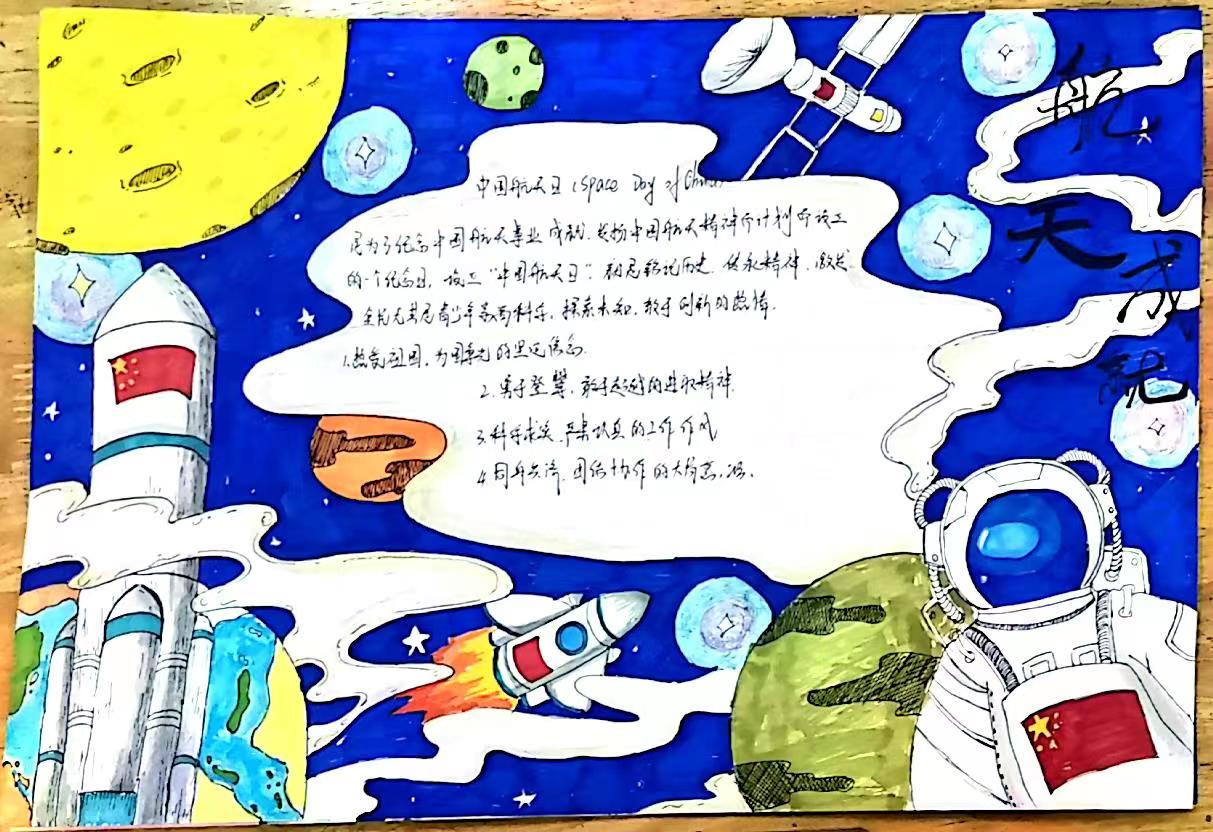 航天成就
中国航天日（Space Day of China）
是为了纪念中国航天事业成就、发扬中国航天精神而计划而设立
的一个纪念日，设立"中国航天日"，旨在铭记历史、传承精神、激发
全民尤其是青少年崇尚科学、探索未知、敢于创新的热情.
1.热爱祖国、为国争光的坚定信念.
2.勇于登攀、敢于超越的进取精神.
3.科学求实、严肃认真的工作作风
4.同舟共济、团结协作的大局意识.